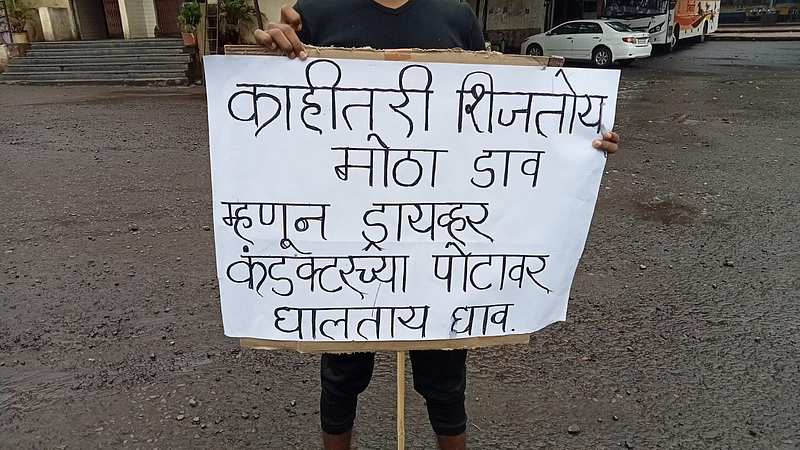 काहीतरी शिजतोय
मोठा डाव
म्हणून ड्रायव्हर
कंडक्टरच्या पोटावर
घालताय घाव.